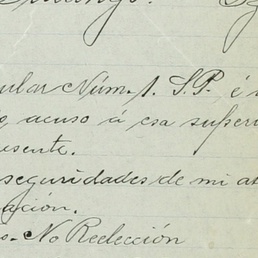 ular Núm. 1. S.P. é i
acuso á esa superi
esente.
seguridades de mi at
ación.
o.- No Reelección